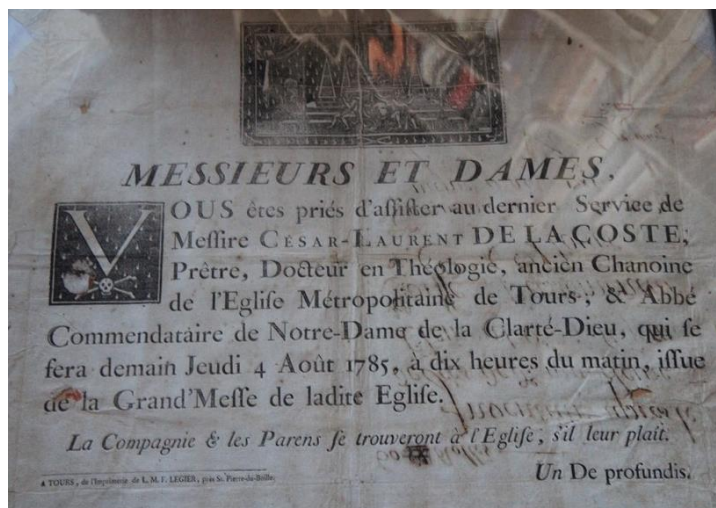 MESSIEURS ET DAMES,
VOUS êtes priés d'aſſiſter au dernier Service de
Meſſire CÉSAR-LAURENT DE LA COSTE,
Prêtre, Docteur en Théologie, ancien Chanoine
de l'Egliſe Métropolitaine de Tours, & Abbé
Commendataire de Notre-Dame de la Clarté-Dieu, qui ſe
fera demain Jeudi 4 Août 1785, à dix heures du matin, iſſue
de la Grand'Meſſe de ladite Egliſe.
La Compagnie & les Parens ſe trouveront à l'Egliſe, s'il leur plaît.
Un De profundis.
A TOURS, de l'Imprimerie de L. M. F. LEGIER, près St. Pierre-du-Boille.